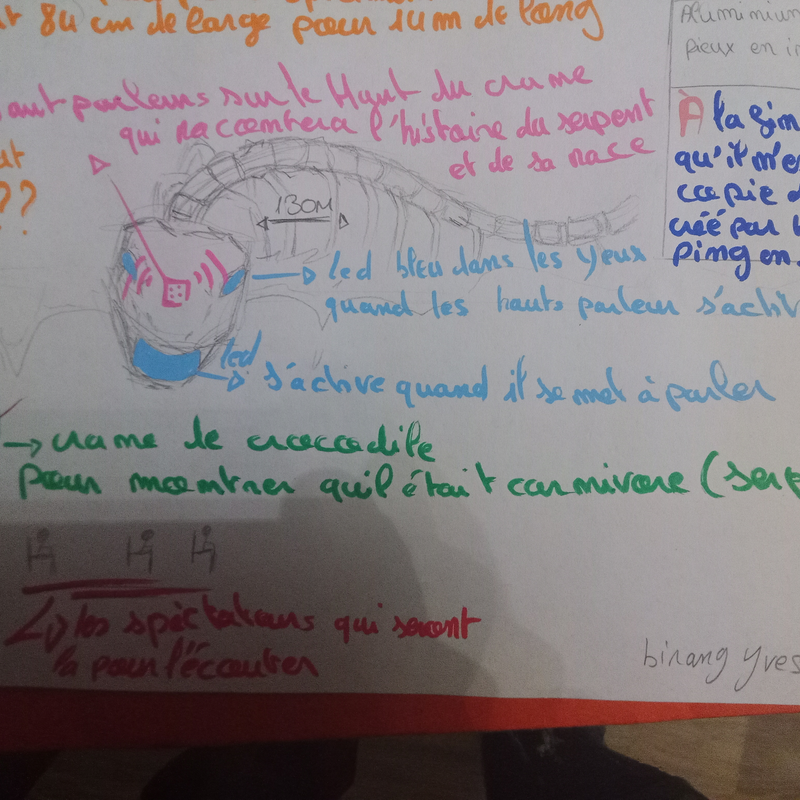 84 cm de large pour 14m de long
Aluminium
pieux en
aut parleurs sur le Haut du crame
qui racontera l'histoire du serpent
et de sa race
??
À la
qu'il m'e
copie d
créé par
ping en
130M
led bleu dans les yeux
quand les hauts parleur s'activ
led
s'active quand il se met à parler
crame de crocodile
pour montrer qu'il était carnivore (serp
les spèctateurs qui seront
la pour l'écouter
binang yves